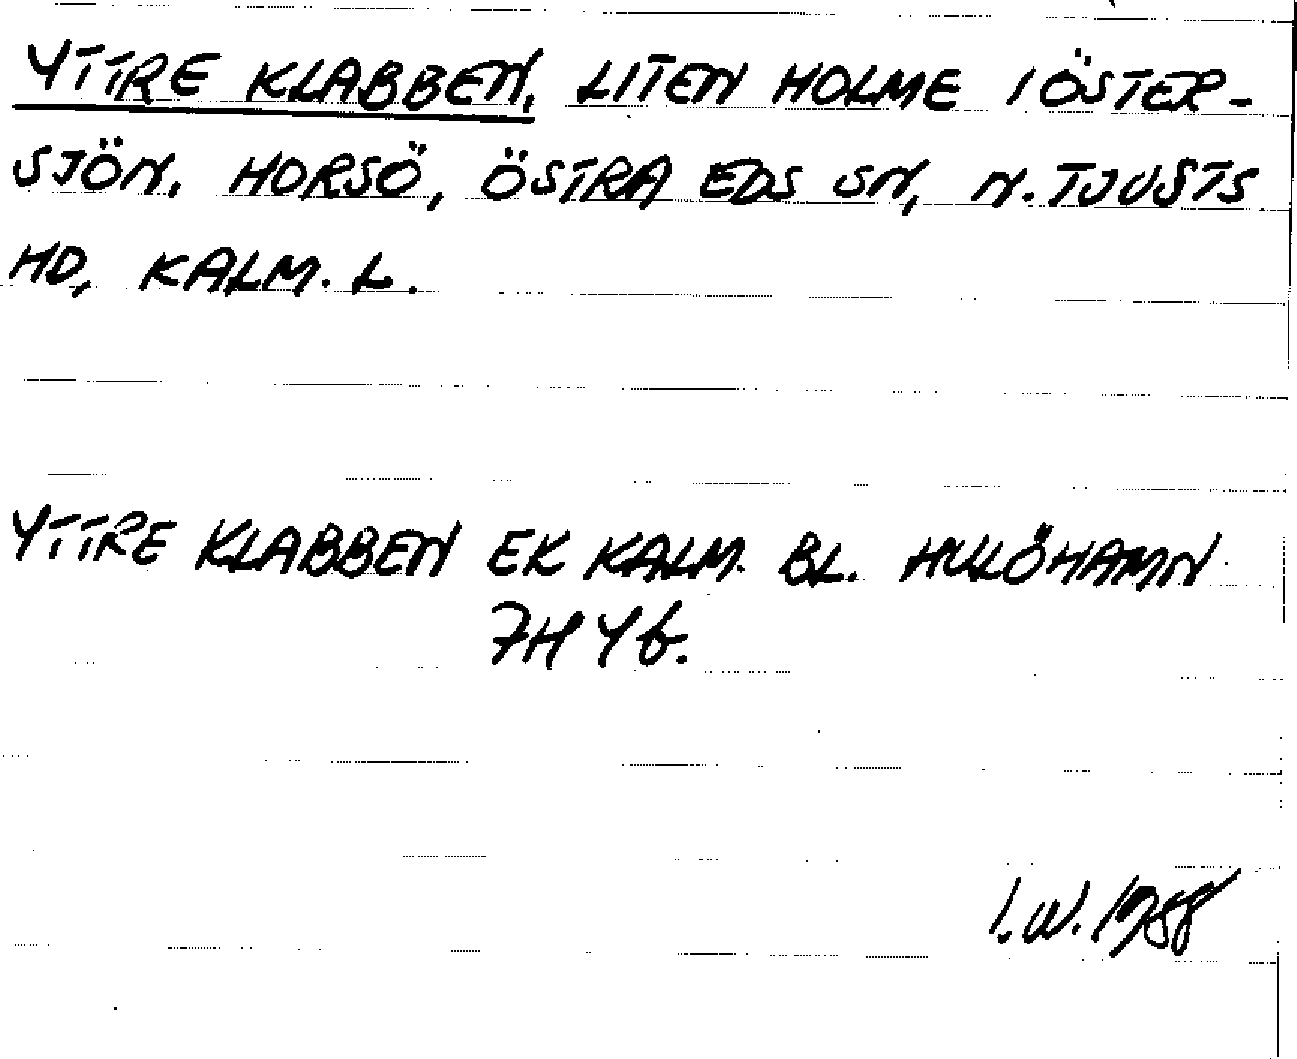 YTTRE KLABBEN, LITEN HOLME I ÖSTER-
SJÖN. HORSÖ, ÖSTRA EDS SN, N. TJUSTS
HD, KALM. L.
YTTRE KLABBEN EK KALM. BL. HULÖHAMN
7H Y b.
I.W. 1988